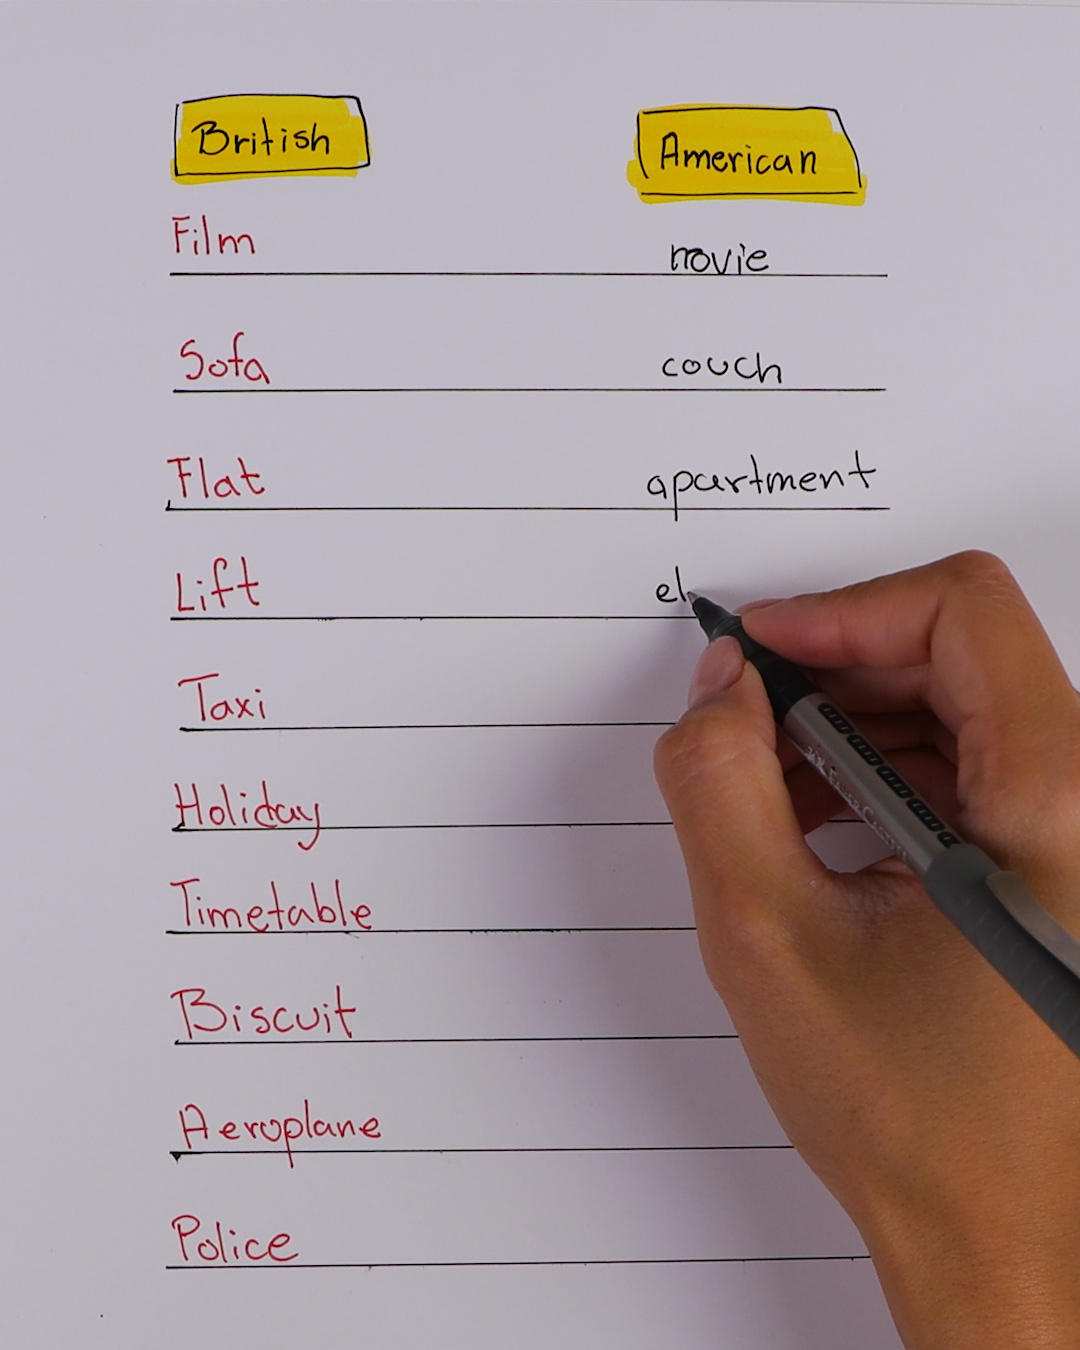 British American
Film movie
Sofa couch
Flat apartment
Lift el
Taxi
Holiday
Timetable
Biscuit
Aeroplane
Police
FABER-CASTELL